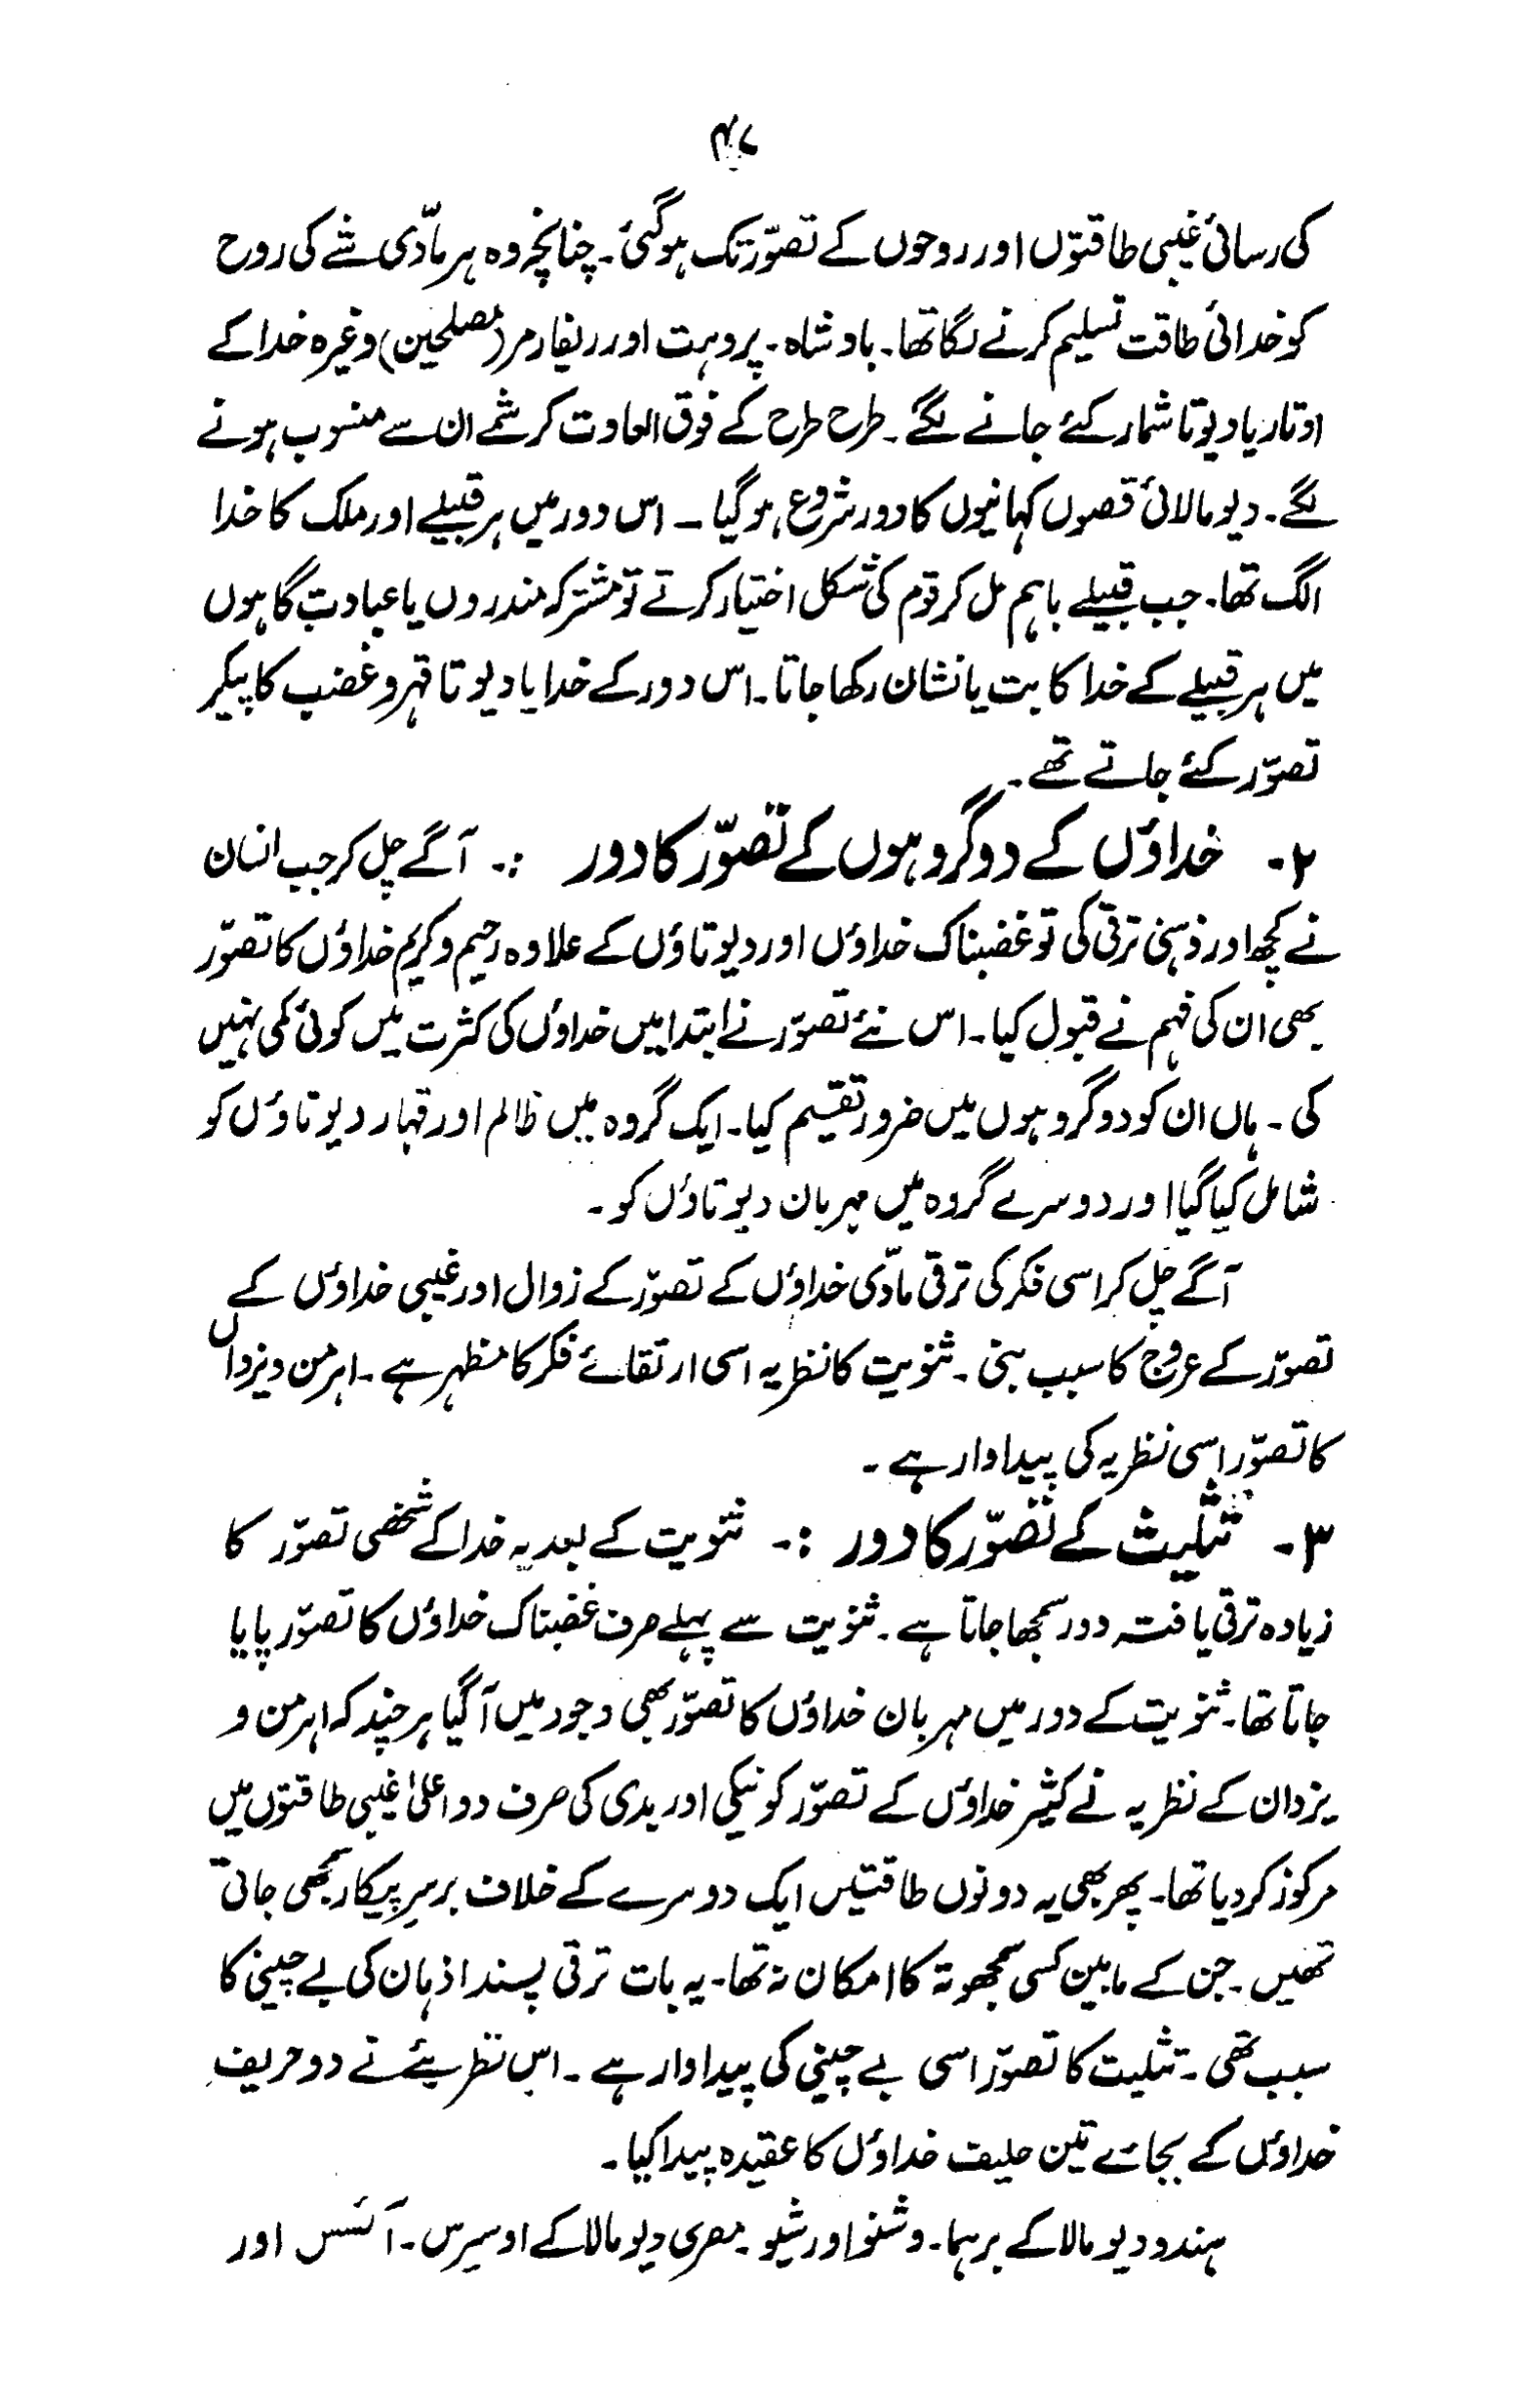 ۴۷
کی رسائی غیبی طاقتوں اور روحوں کے تصوّر تک ہوگئی۔ چنانچہ وہ ہر مادّی شے کی روح
کو خدائی طاقت تسلیم کرنے لگا تھا۔ بادشاہ۔ پروہت اور ریفارمر (مصلحین) وغیرہ خدا کے
اوتار یا دیوتا شمار کئے جانے لگے۔ طرح طرح کے فوق العادت کرشمے ان سے منسوب ہونے
لگے۔ دیو مالائی قصوں کہانیوں کا دور شروع ہوگیا ـ اس دور میں ہر قبیلے اور ملک کا خدا
الگ تھا۔ جب قبیلے باہم مل کر قوم کی شکل اختیار کرتے تو مشترکہ مندروں یا عبادت گاہوں
میں ہر قبیلے کے خدا کا بت یا نشان رکھا جاتا۔ اس دور کے خدا یا دیوتا قہر و غضب کا پیکر
تصوّر کئے جاتے تھے۔
۲۔ خداؤں کے دو گروہوں کے تصوّر کا دور :۔ آگے چل کر جب انسان
نے کچھ اور ذہنی ترقی کی تو غضبناک خداؤں اور دیوتاؤں کے علاوہ رحیم و کریم خداؤں کا تصوّر
بھی ان کی فہم نے قبول کیا۔ اس نئے تصوّر نے ابتدا میں خداؤں کی کثرت میں کوئی کمی نہیں
کی۔ ہاں ان کو دو گروہوں میں ضرور تقسیم کیا۔ ایک گروہ میں ظالم اور قہار دیوتاؤں کو
شامل کیا گیا اور دوسرے گروہ میں مہربان دیوتاؤں کو۔
آگے چل کر اسی فکر کی ترقی مادّی خداؤں کے تصوّر کے زوال اور غیبی خداؤں کے
تصوّر کے عروج کا سبب بنی۔ ثنویت کا نظریہ اسی ارتقائے فکر کا مظہر ہے۔ اہرمن و یزداں
کا تصوّر اسی نظریہ کی پیداوار ہے۔
۳۔ تثلیث کے تصوّر کا دور :۔ ثنویت کے بعد یہ خدا کے شخصی تصوّر کا
زیادہ ترقی یافتہ دور سمجھا جاتا ہے۔ ثنویت سے پہلے صرف غضبناک خداؤں کا تصوّر پایا
جاتا تھا۔ ثنویت کے دور میں مہربان خداؤں کا تصوّر بھی وجود میں آگیا ہر چند کہ اہرمن و
یزدان کے نظریہ نے کثیر خداؤں کے تصوّر کو نیکی اور بدی کی صرف دو اعلیٰ غیبی طاقتوں میں
مرکوز کر دیا تھا۔ پھر بھی یہ دونوں طاقتیں ایک دوسرے کے خلاف برسرِ پیکار سمجھی جاتی
تھیں۔ جن کے مابین کسی سمجھوتہ کا امکان نہ تھا۔ یہ بات ترقی پسند اذہان کی بے چینی کا
سبب تھی۔ تثلیث کا تصوّر اسی بے چینی کی پیداوار ہے۔ اس نظریئے نے دو حریف
خداؤں کے بجائے تین حلیف خداؤں کا عقیدہ پیدا کیا۔
ہندو دیو مالا کے برہما۔ وشنو اور شیو۔ مصری دیو مالا کے اوسیرس۔ آئسس اور